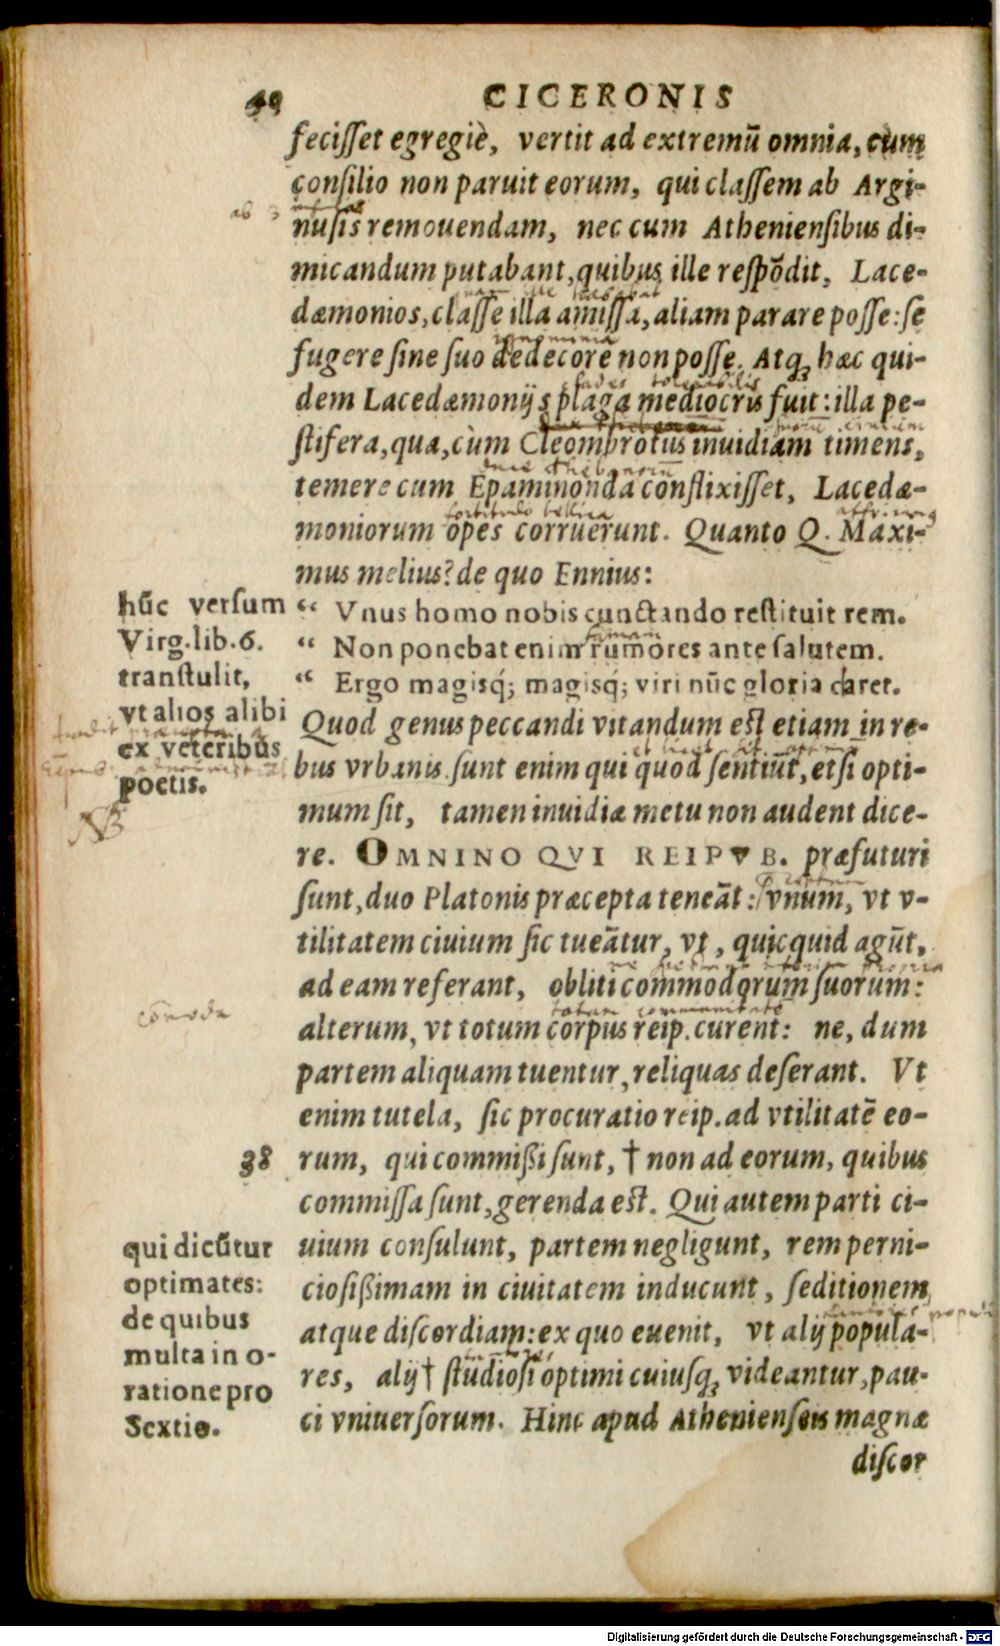 CICERONIS
feciſſet egregiè, vertit ad extremũ omnia, cùm
conſilio non paruit eorum, qui claſſem ab Argi-
nuſis remouendam, nec cum Athenienſibus di-
micandum putabant, quibus ille reſpõdit, Lace-
dæmonios, claſſe illa amiſſa, aliam parare poſſe: ſe
fugere ſine ſuo dedecore non poſſe. Atq; hæc qui-
dem Lacedæmonijs plaga mediocris fuit: illa pe-
ſtifera, qua, cùm Cleombrotus inuidiam timens,
temere cum Epaminonda conflixiſſet, Lacedæ-
moniorum opes corruerunt. Quanto Q. Maxi-
mus melius? de quo Ennius:
“ Vnus homo nobis cunctando reſtituit rem.
“ Non ponebat enim rumores ante ſalutem.
“ Ergo magisq́; magisq́; viri nũc gloria claret.
hũc verſum
Virg. lib. 6.
tranſtulit,
vt alios alibi
ex veteribus
poetis.
NB
Quod genus peccandi vitandum eſt etiam in re-
bus vrbanis. ſunt enim qui quod ſentiũt, etſi opti-
mum ſit, tamen inuidiæ metu non audent dice-
re. OMNINO QVI REIPVB. præfuturi
ſunt, duo Platonis præcepta teneãt: vnum, vt v-
tilitatem ciuium ſic tueãtur, vt, quicquid agũt,
ad eam referant, obliti commodorum ſuorum:
alterum, vt totum corpus reip. curent: ne, dum
partem aliquam tuentur, reliquas deſerant. Vt
enim tutela, ſic procuratio reip. ad vtilitatẽ eo-
38 rum, qui commißi ſunt, † non ad eorum, quibus
commiſſa ſunt, gerenda eſt. Qui autem parti ci-
uium conſulunt, partem negligunt, rem perni-
cioſißimam in ciuitatem inducunt, ſeditionem
atque diſcordiam: ex quo euenit, vt alij popula-
res, alij † ſtudioſi optimi cuiuſq; videantur, pau-
ci vniuerſorum. Hinc apud Athenienſeis magnæ
diſcor
qui dicũtur
optimates:
de quibus
multa in o-
ratione pro
Sextio.
Digitalisierung gefördert durch die Deutsche Forschungsgemeinschaft - DFG